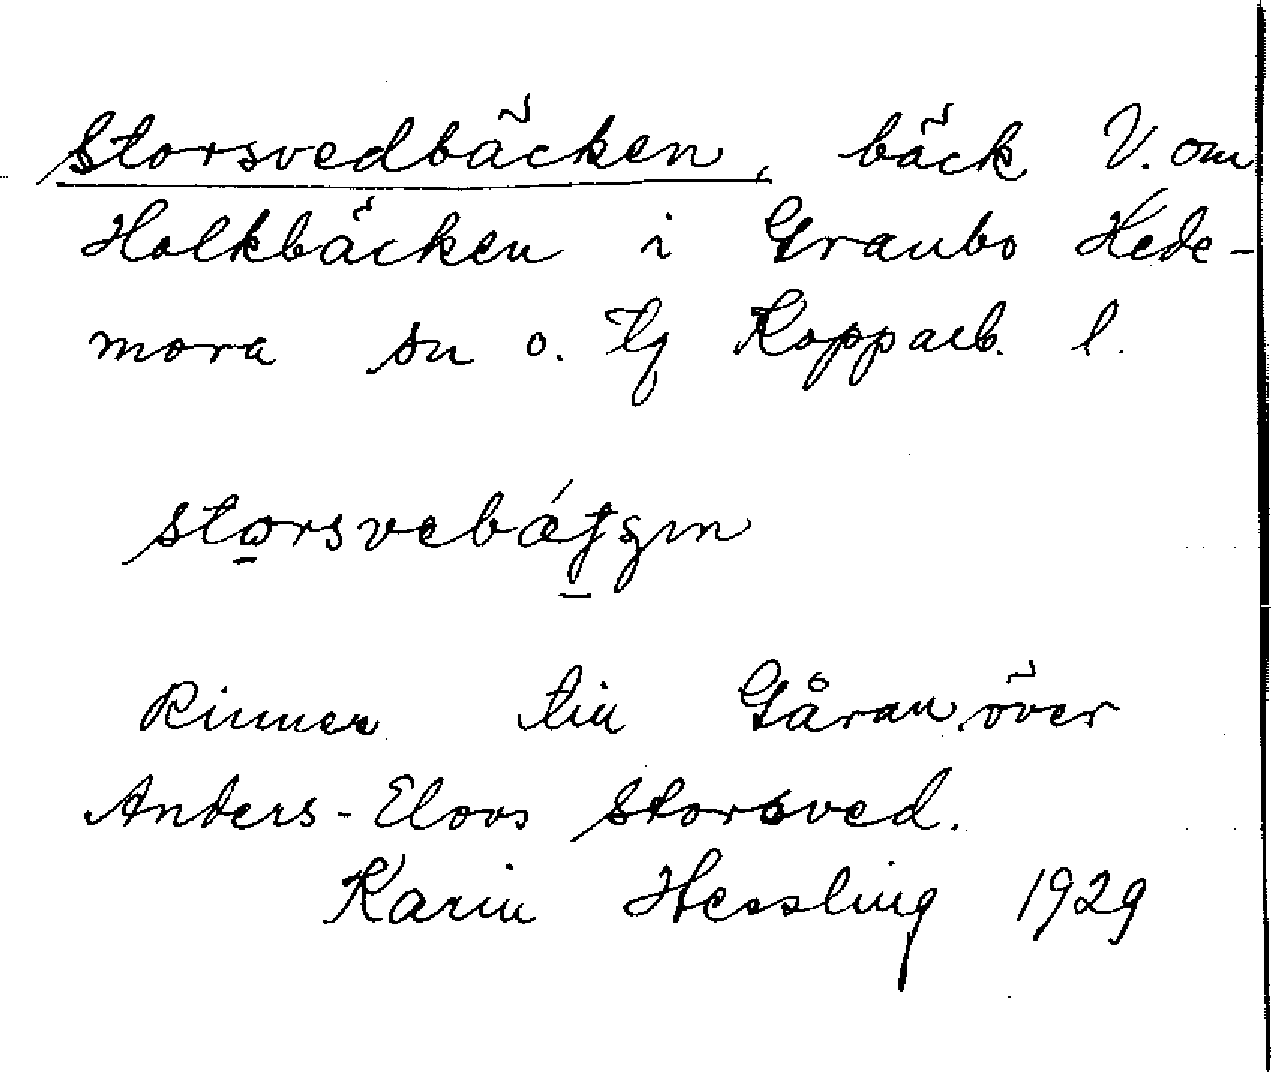 Storsvedbäcken, bäck V. om
Holkbäcken i Graubo Hede-
mora sn o. tg Kopparb. l.
Rinner till Gåran över
Anders-Elovs Storsved.
Karin Hessling 1929